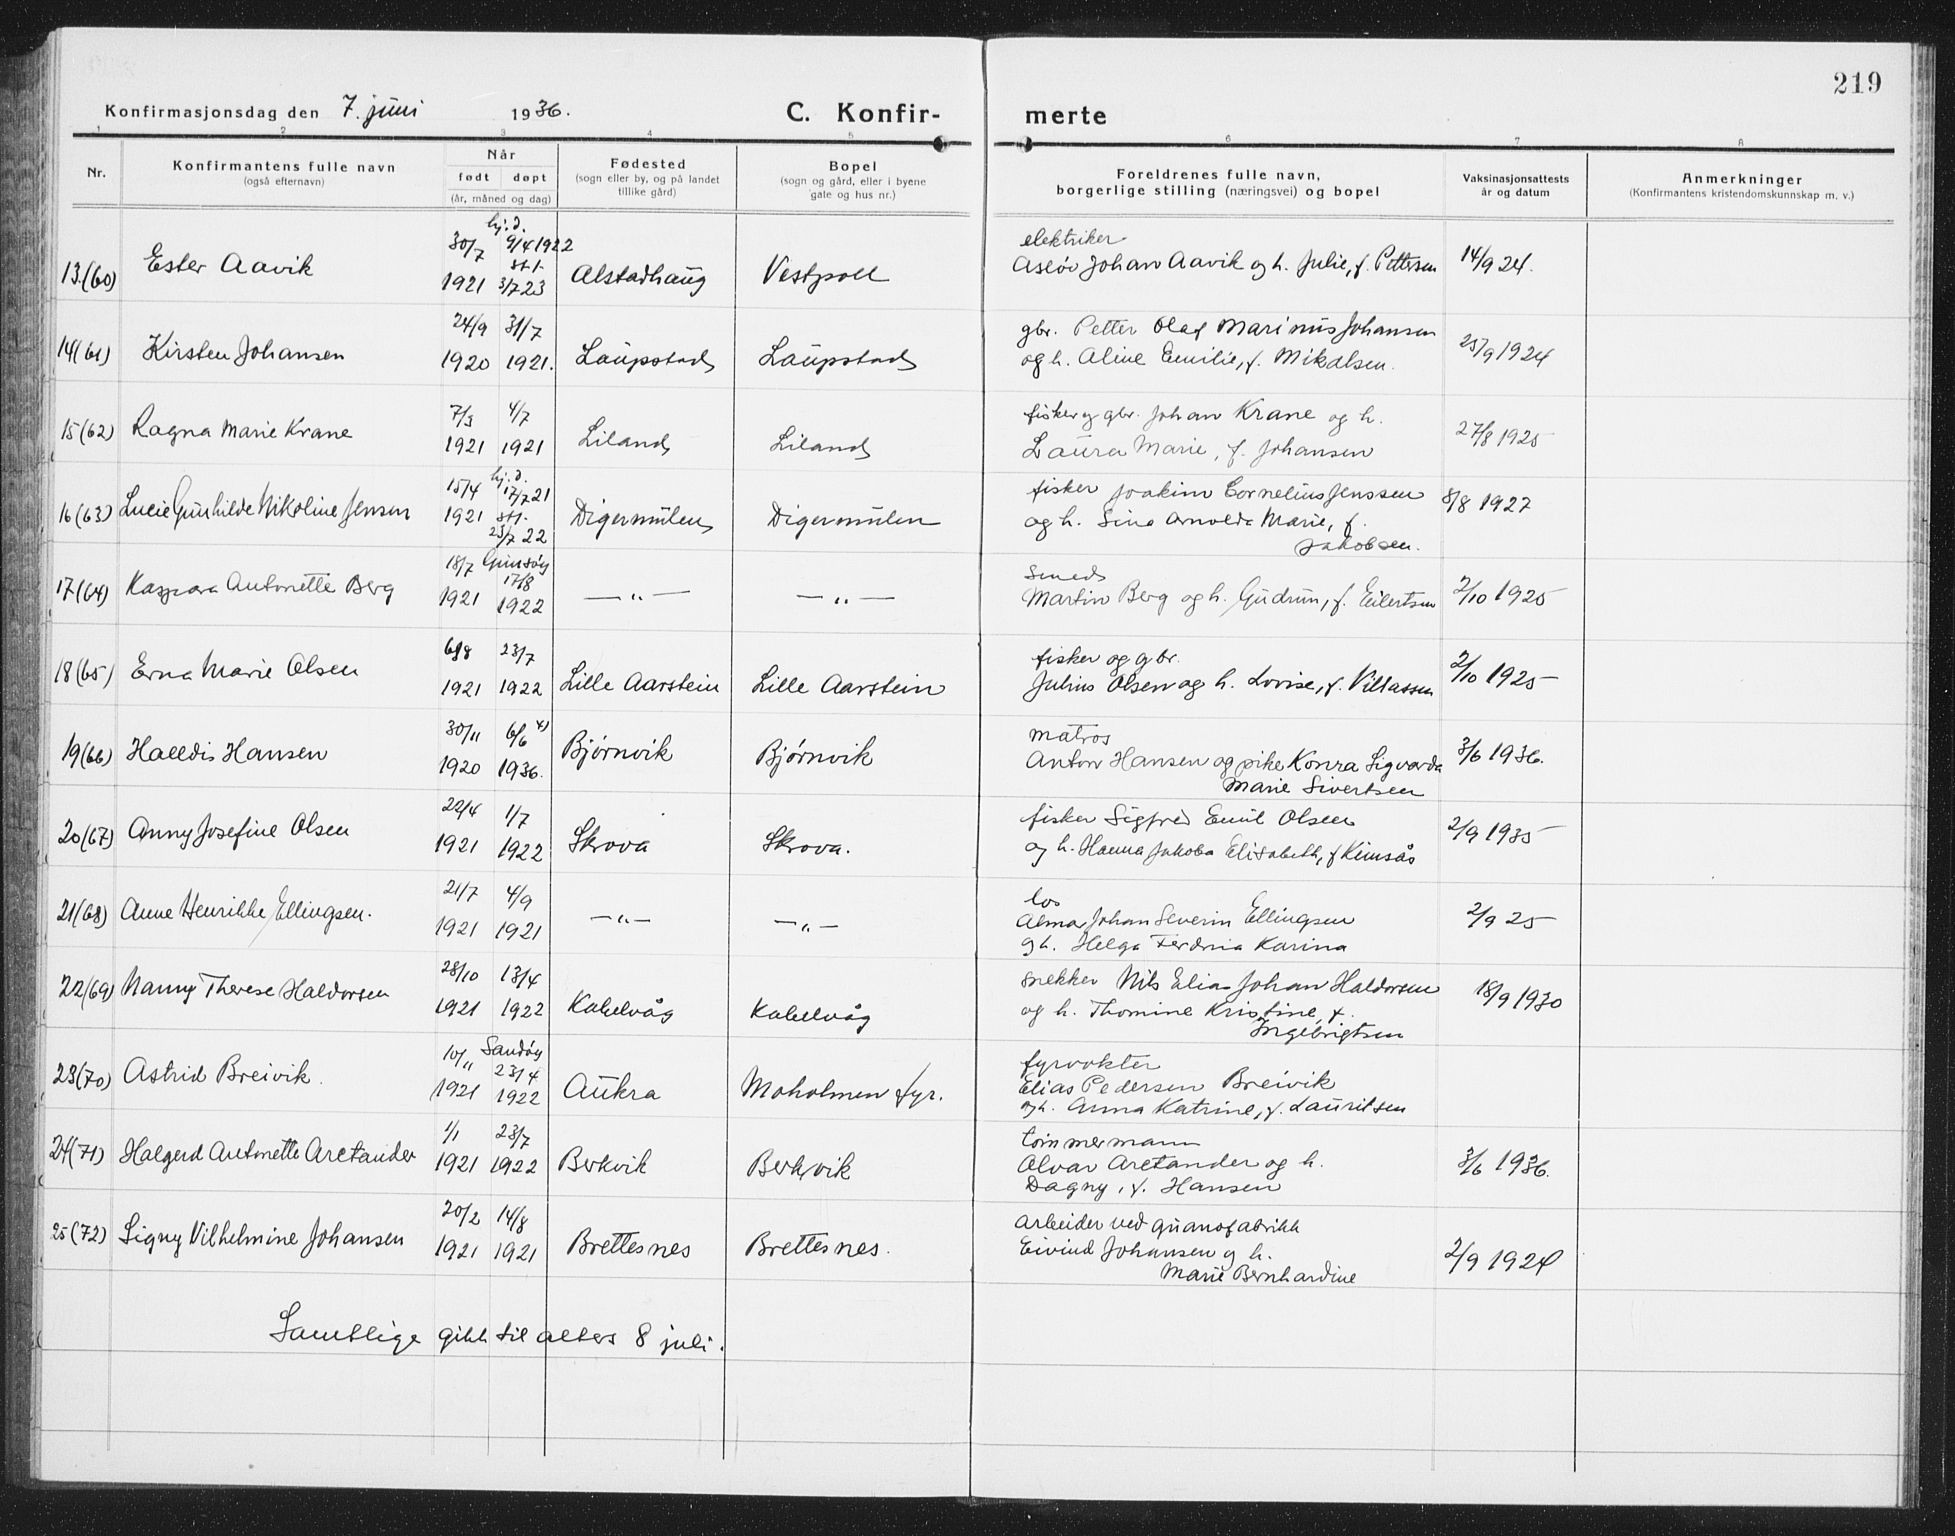 219
Konfirmasjonsdag den 7. juni 1936. C. Konfir- merte
1 2 3 4 5 6 7 8
Nr. Konfirmantens fulle navn (også efternavn) Når født døpt (år, måned og dag) Fødested (sogn eller by, og på landet tillike gård) Bopel (sogn og gård, eller i byene gate og hus nr.) Foreldrenes fulle navn, borgerlige stilling (næringsvei) og bopel Vaksinasjonsattests år og datum Anmerkninger (Konfirmantens kristendomskunnskap m. v.)
hj. d.
30/7 9/4 1922 elektriker
13.(60) Ester Aavik st. Alstadhaug Vestpoll Johan Aavik og h. Julie, f. Pettersen 14/9 24.
1921 3/7 23
24/9 31/7 gbr. Petter Olaf Marinus Johansen
14(61) Kirsten Johansen 1920 1921. Laupstad Laupstad og h. Aline Emilie, f. Mikalsen. 25/9 1924
7/3 4/7 fisker og gbr. Johan Krane og h.
15(62) Ragna Marie Krane 1921 1921 Liland Liland Laura Marie, f. Johansen 27/8 1925
15/4 hj. d. 17/7 21 fisker Joakim Cornelius Jenssen
16(63) Lucie Gunhilde Nikoline Jensen 1921 st. 23/7 22 Digermulen Digermulen og h. Sina Arnolda Marie, f. 8/8 1927
Jakobsen.
18/7 Gimsøy 17/8 smed
17(64) Kaspara Antonette Berg 1921 1922 — „ — — „ — Martin Berg og h. Gudrun, f. Eilertsen 2/10 1925
6/8 23/7 fisker og gbr.
18(65) Erna Marie Olsen 1921 1922 Lille Aarstein Lille Aarstein Julius Olsen og h. Lovise, f. Villassen 2/10 1925
30/11 6/6 matros
19(66) Halldis Hansen 1920 1936. Bjørnvik Bjørnvik Anton Hansen og pike Konra Sigvarda 3/6 1936.
Marie Sivertsen
22/4 1/7 fisker Sigfred Emil Olsen
20(67) Anny Josefine Olsen 1921 1922 Skrova Skrova. og h. Hanna Jakoba Elisabeth, f Kimsås 2/9 1935
21/7 4/9 los
21(68) Anne Henrikke Ellingsen. 1921 1921 — „ — — „ — Almar Johan Severin Ellingsen 2/9 25
og h. Helga Karina
28/10 13/4 snekker Nils Elias Johan Haldorsen
22(69) Nanny Therese Haldorsen 1921 1922 Kabelvåg Kabelvåg og h. Thomine Kristine, f. 18/9 1930
Ingebrigtsen
10/11 Sandøy 23/4 fyrvokter
23(70) Astrid Breivik. 1921 1922 Aukra Moholmen fyr. Elias Pedersen Breivik
og h. Anna Katrine, f. Lauritsen
1/1 23/7 tømmermann
24(71) Halgerd Antonette Aretander 1921 1922 Berkvik Berkvik Alvar Aretander og h. 3/6 1936.
Dagny, f. Hansen
20/2 14/8 arbeider ved guanofabrikk
25(72) Signy Vilhelmine Johansen 1921 1921 Brettesnes Brettesnes. Eivind Johansen og h. 2/9 1924
Marie Bernhardine
Samtlige gikk til alters 8 juli.